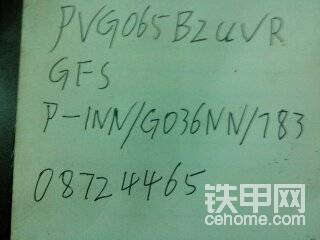 PVG065B2UVR
GFS
P-1NN/G036NN/783
08724465
铁甲网
cehome.com